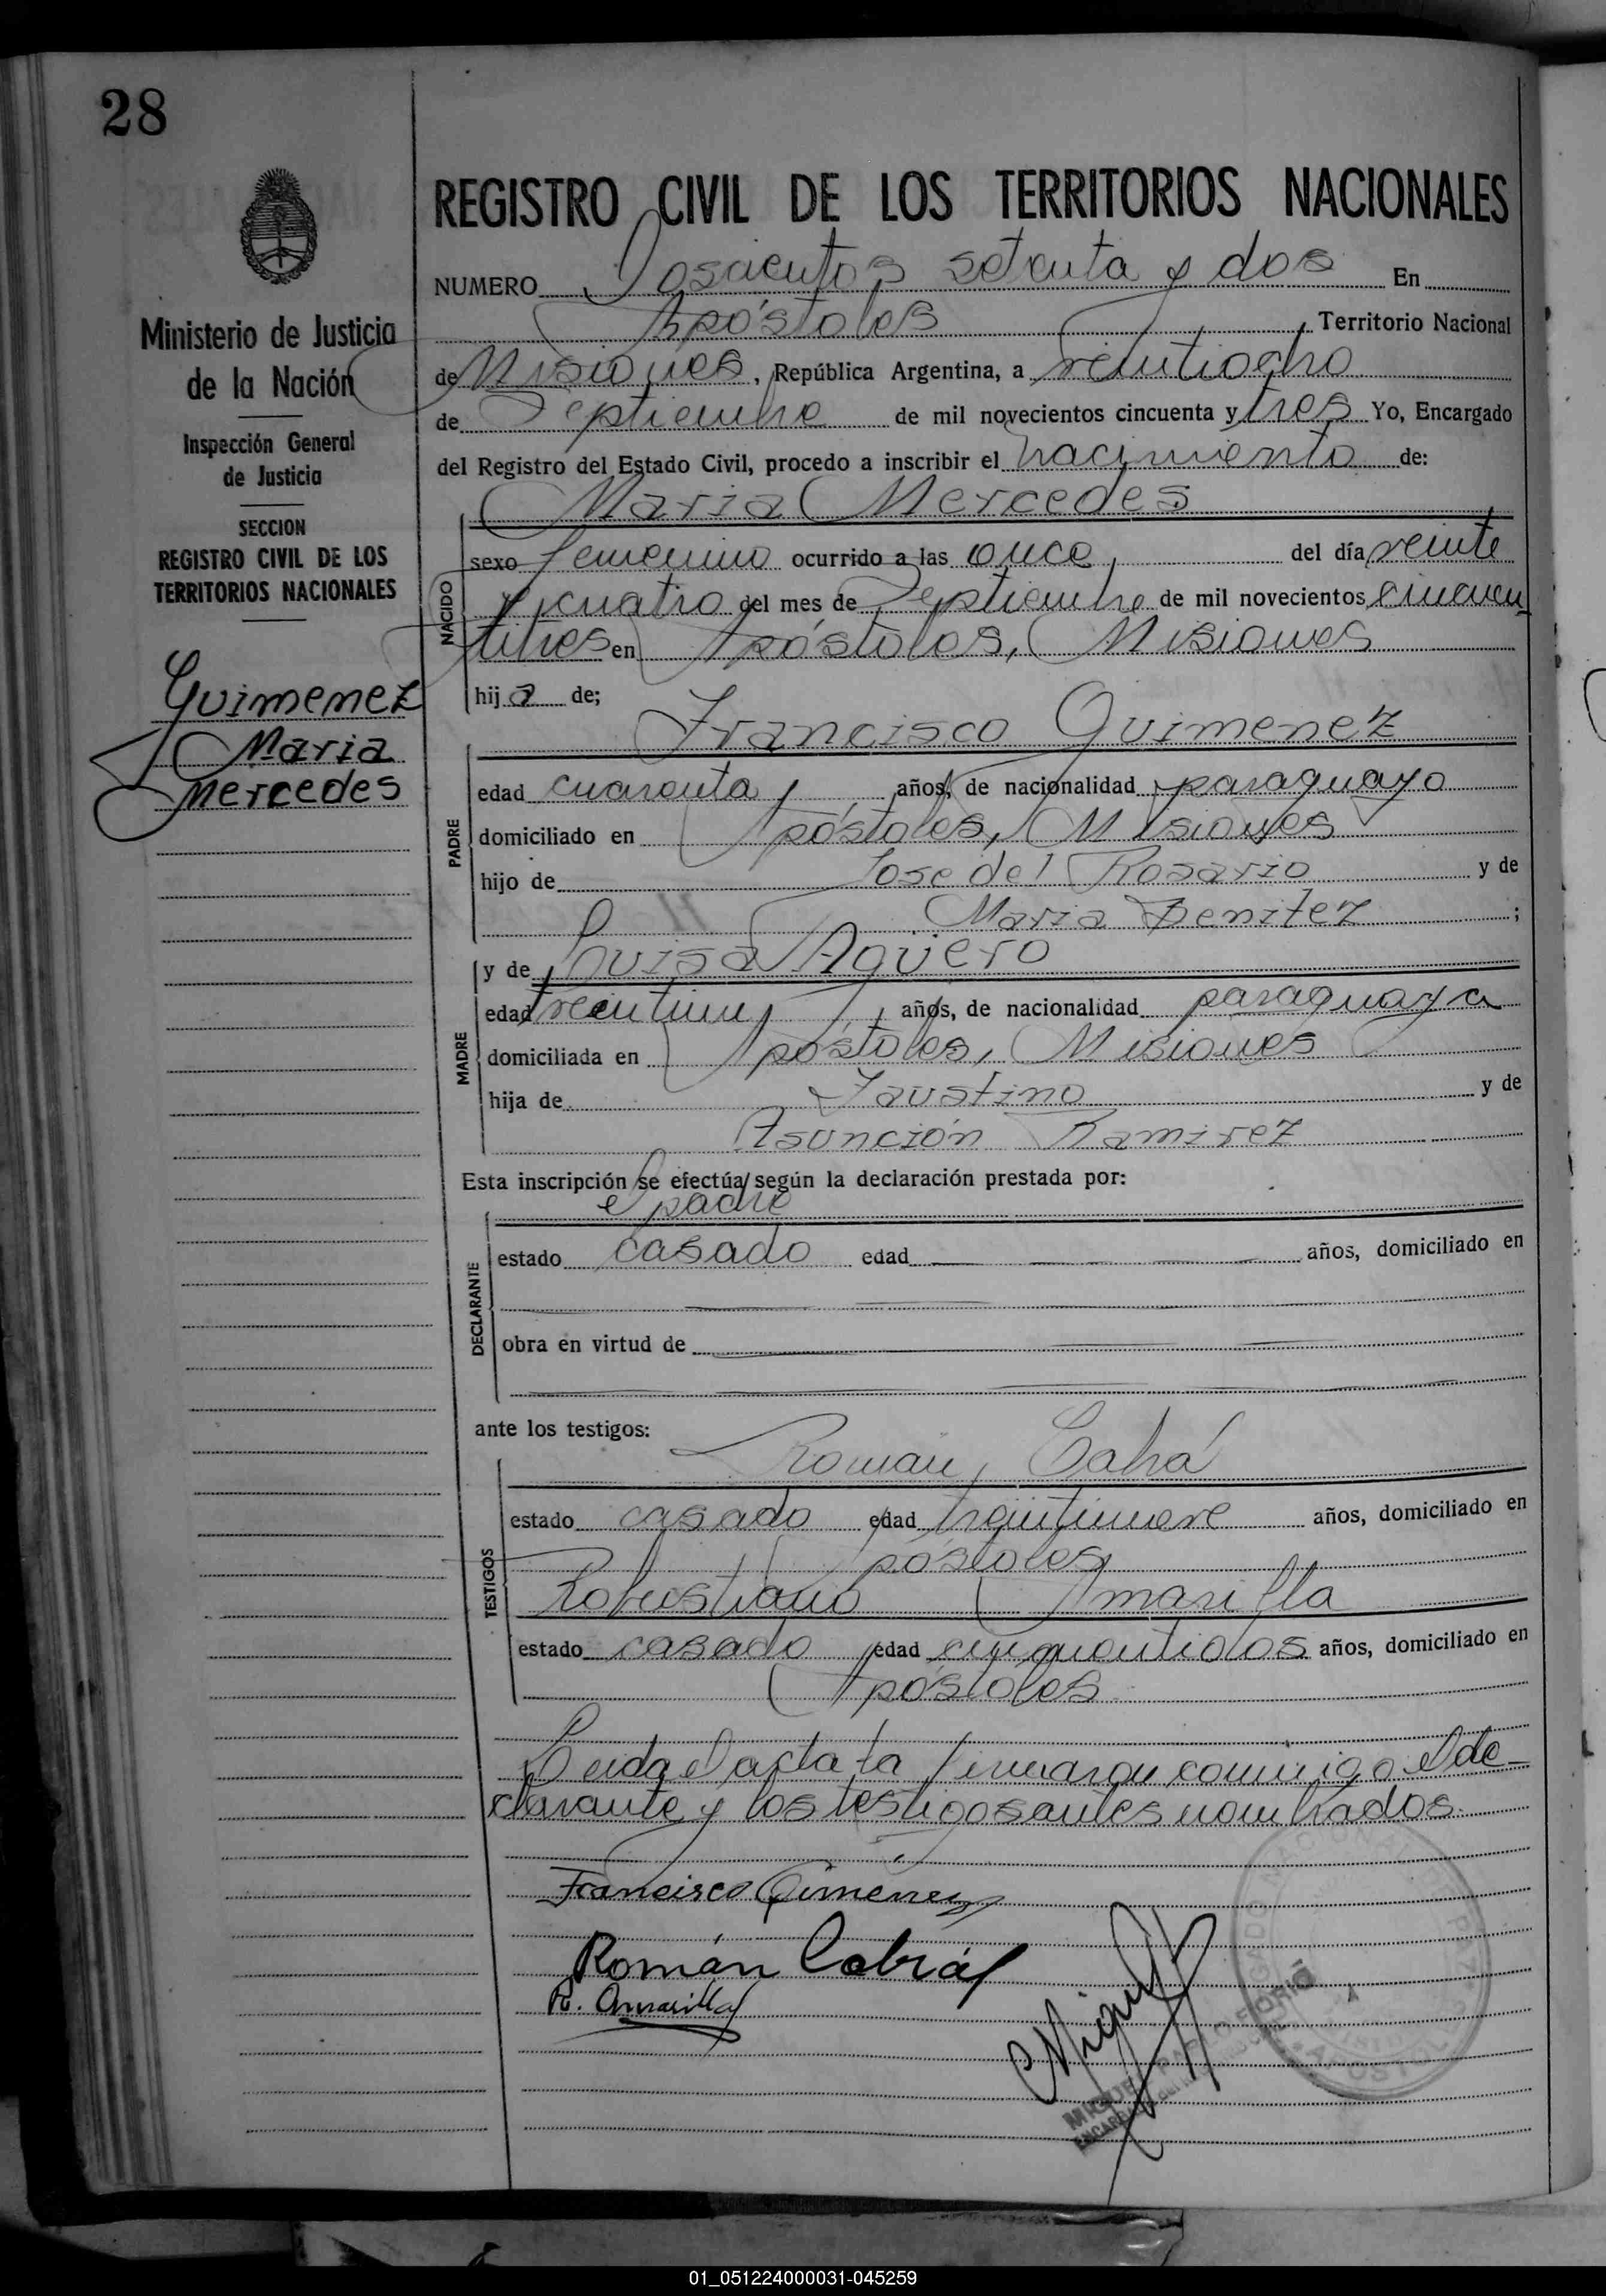 28
REGISTRO CIVIL DE LOS TERRITORIOS NACIONALES
NUMERO Doscientos setenta y dos En
Apóstoles, Territorio Nacional
de Misiones, República Argentina, a veintiocho
de Septiembre de mil novecientos cincuenta y tres Yo, Encargado
del Registro del Estado Civil, procedo a inscribir el nacimiento de:
Maria Mercedes
Ministerio de Justicia
de la Nación
Inspección General
de Justicia
SECCION
REGISTRO CIVIL DE LOS
TERRITORIOS NACIONALES
Guimenez
Maria
Mercedes
NACIDO
sexo femenino ocurrido a las once, del día veinte
y cuatro del mes de Septiembre de mil novecientos cincuen
titres en Apóstoles, Misiones
hij a de;
Francisco Guimenez
PADRE
edad cuarenta años, de nacionalidad paraguayo
domiciliado en Apóstoles, Misiones
hijo de Jose del Rosario y de
Maria Benitez ;
y de Luisa Agüero
MADRE
edad años, de nacionalidad paraguaya
domiciliada en Apóstoles, Misiones
hija de Faustino y de
Asunción Ramirez
Esta inscripción se efectúa según la declaración prestada por:
el padre
DECLARANTE
estado casado edad años, domiciliado en
obra en virtud de
ante los testigos:
Roman Cabrá
TESTIGOS
estado casado edad treintinueve años, domiciliado en
Apóstoles
Robustiano Amarilla
estado casado edad cincuentidos años, domiciliado en
Apóstoles
Leida el acta la firmaron conmigo el de-
clarante y los testigos antes nombrados.
Francisco Gimenez
Román Cabrál
R. Amarilla
Miguel
01_051224000031-045259